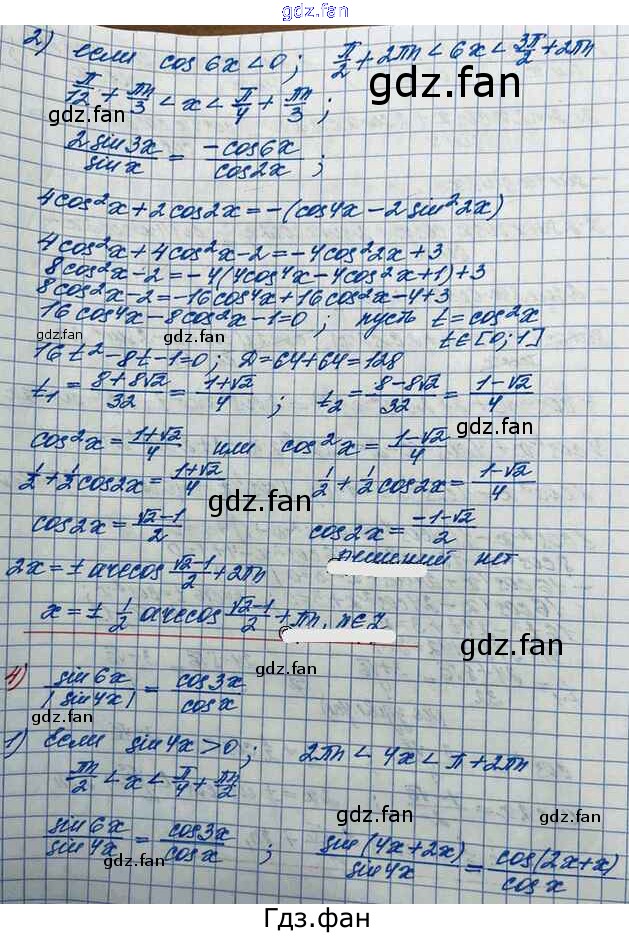 gdz.fan
2) если cos6x<0; π/2+2πn<6x<3π/2+2πn
π/12+πn/3<x<π/4+πn/3;
gdz.fan
gdz.fan
2sin3x/sinx = -cos6x/cos2x;
4cos²x+2cos2x=-(cos4x-2sin²2x)
gdz.fan
gdz.fan
4cos²x+4cos²x-2=-4cos²2x+3
8cos²x-2=-4(4cos⁴x-4cos²x+1)+3
8cos²x-2=-16cos⁴x+16cos²x-4+3
16cos⁴x-8cos²x-1=0; пусть t=cos²x
t∈[0;1]
gdz.fan
gdz.fan
16t²-8t-1=0; D=64+64=128
t₁=8+8√2/32=1+√2/4; t₂=8-8√2/32=1-√2/4
cos²x=1+√2/4 или cos²x=1-√2/4
gdz.fan
1/2+1/2cos2x=1+√2/4 1/2+1/2cos2x=1-√2/4
gdz.fan
cos2x=√2-1/2 cos2x=-1-√2/2
gdz.fan
2x=±arccos √2-1/2+2πn решений нет
x=±1/2 arccos √2-1/2+πn, n∈Z
gdz.fan
gdz.fan
4) sin6x/|sin4x|=cos3x/cosx
gdz.fan
gdz.fan
1) Если sin4x>0; 2πn<4x<π+2πn
πn/2<x<π/4+πn/2
gdz.fan
sin6x/sin4x=cos3x/cosx; sin(4x+2x)/sin4x=cos(2x+x)/cosx
gdz.fan
gdz.fan
Гдз.фан